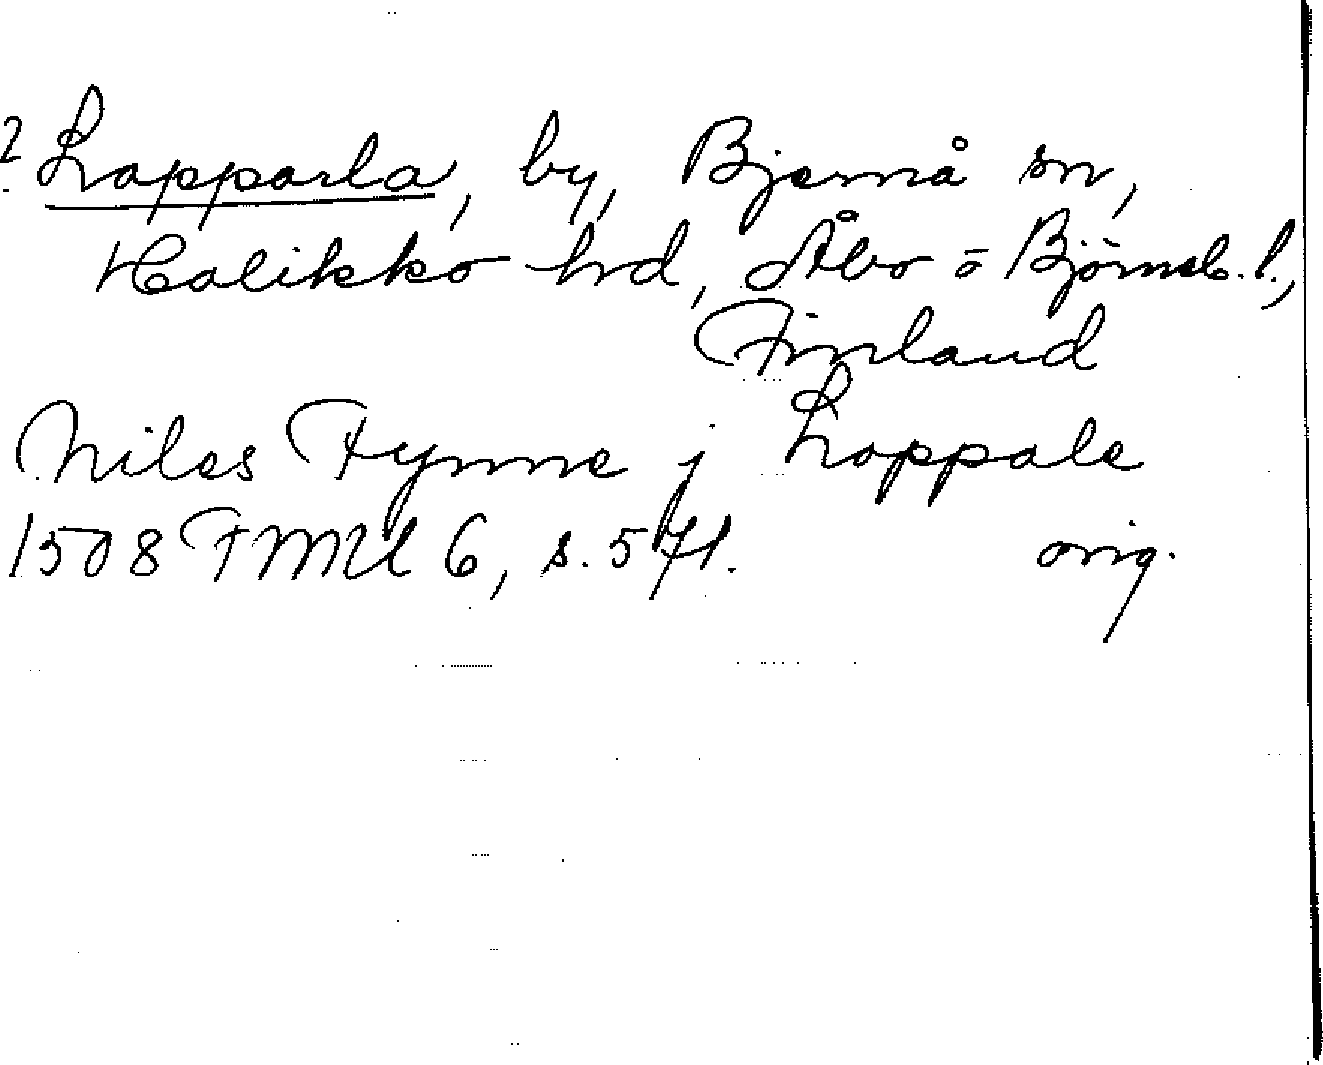 ? Lapparla, by, Bjernå sn,
Halikko hd, Åbo o Björneb. l.,
Finland
Niles Fynne j Lappale
1508 FMU 6, s. 571. orig.